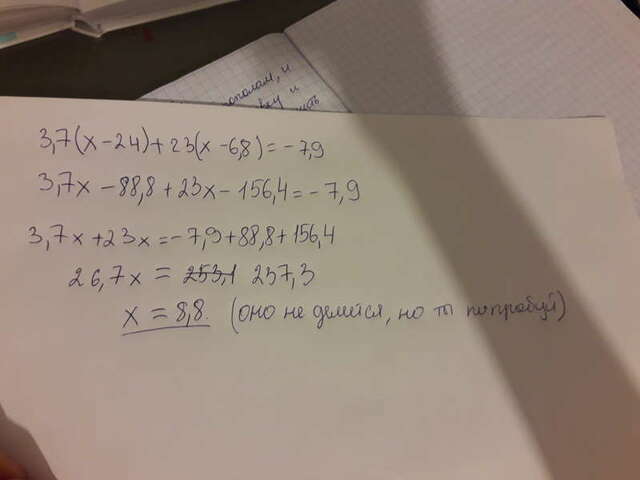 пополам, и
и
3,7(x-24)+23(x-6,8)=-7,9
3,7x-88,8+23x-156,4=-7,9
3,7x+23x=-7,9+88,8+156,4
26,7x = 253,1 237,3
x=8,8 (оно не делится, но ты попробуй)